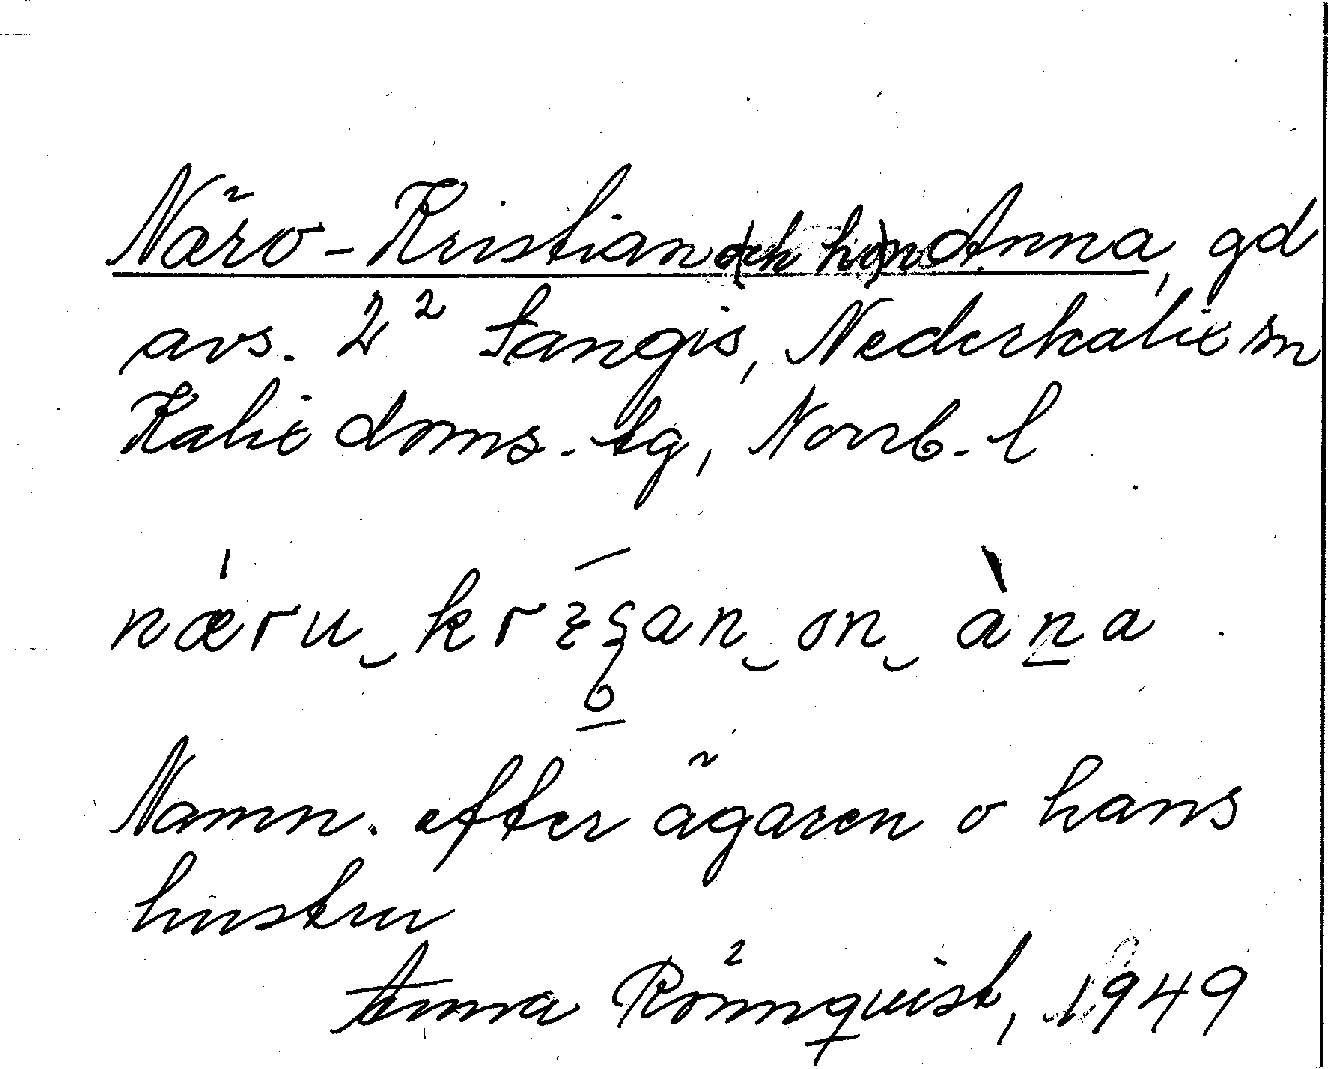 Näro-Kristian (och hon) Anna, gd
avs. 2² Sangis, Nederkalix sn
Kalix doms. tg, Norrb. l
Namn. efter ägaren o hans
hustru
Anna Rönnquist, 1949